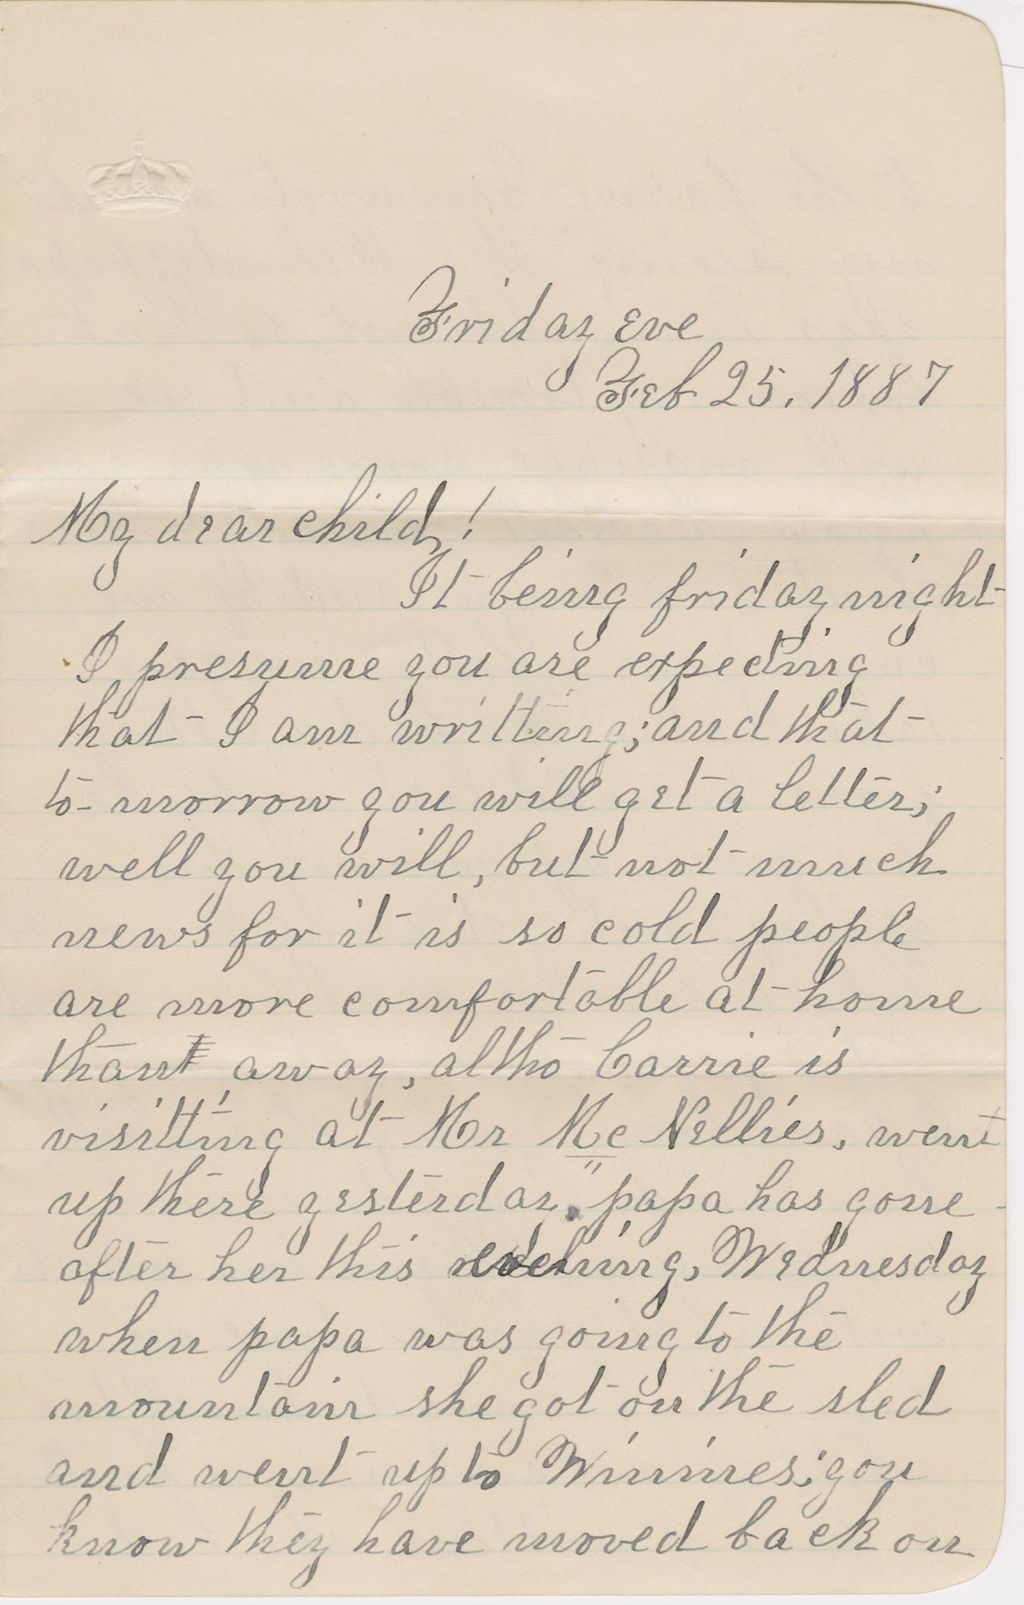 Friday Eve
Feb 25. 1887
My dear child,!
It being friday night
I presume you are expecting
that I am writting; and that
to-morrow you will get a letter;
well you will, but not much
news for it is so cold people
are more comfortable at home
than away, altho Carrie is
visitting at Mr Mc Nellies, went
up there yesterday, papa has gone
after her this evening, Wednesday
when papa was going to the
mountain she got on the sled
and went up to Winnies; you
know they have moved back on